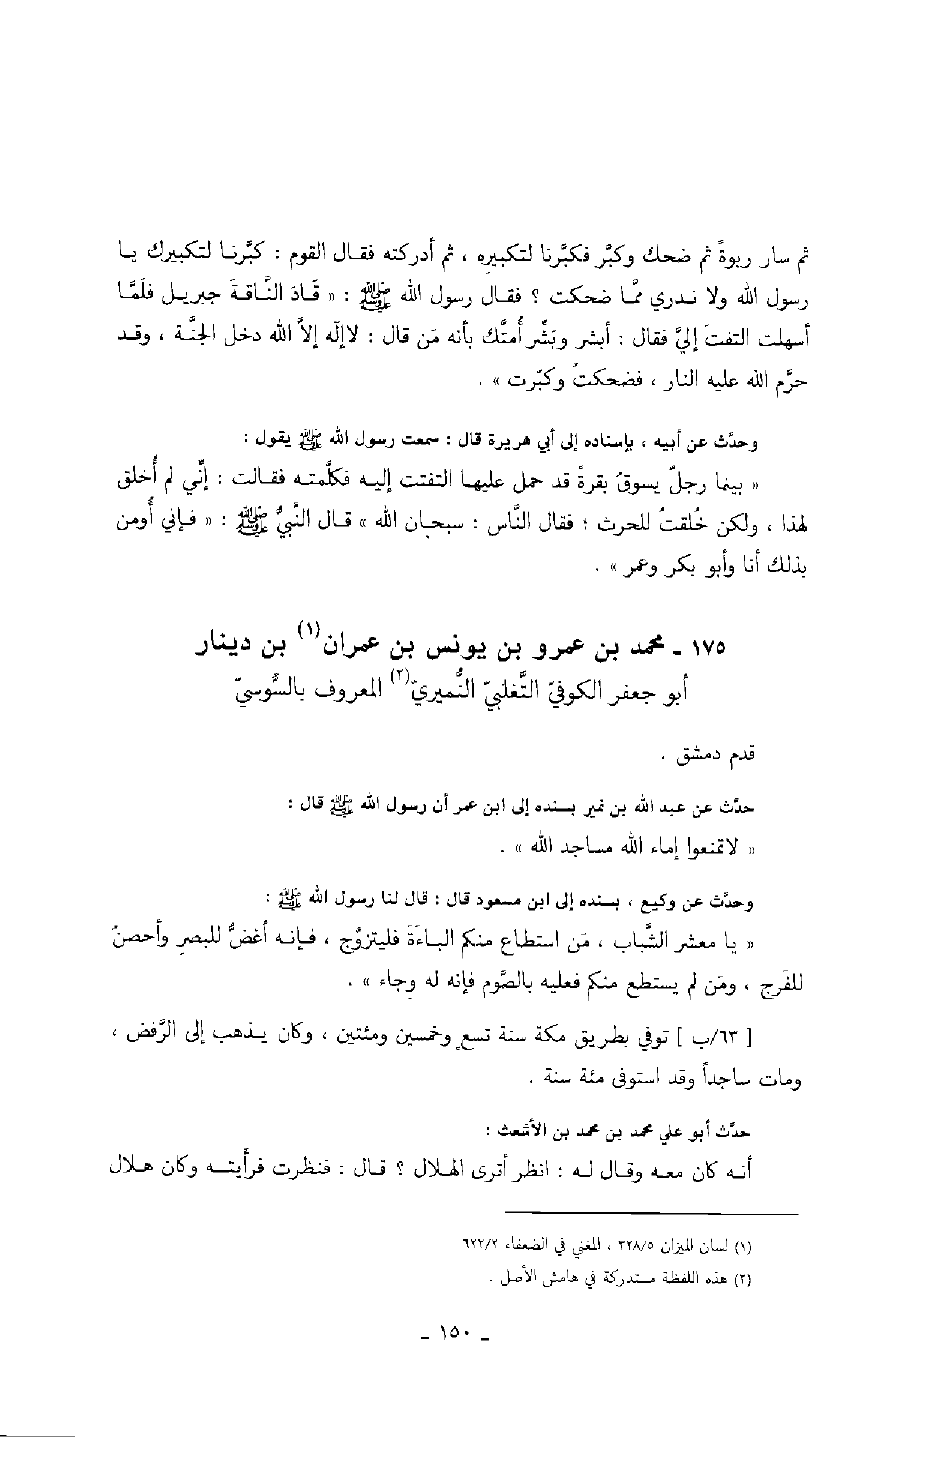 ثم سار ربوةً ثم ضحك وكبَّر فكبَّرنا لتكبيره ، ثم أدركته فقال القوم : كبَّرنا لتكبيرك يا
رسول الله ولا ندري ممَّا ضحكت ؟ فقال رسول الله ﷺ : « قاد النَّاقةَ جبريل فلمَّا
أسهلت التفتَ إليَّ فقال : أبشر وبَشِّر أُمتَّك بأنه مَن قال : لاإله إلاَّ الله دخل الجنَّة ، وقد
حرَّم الله عليه النار ، فضحكتُ وكبَّرت » .
وحدَّث عن أبيه ، بإسناده إلى أبي هريرة قال : سمعت رسول الله ﷺ يقول :
« بينما رجلٌ يسوقُ بقرةً قد حمل عليها التفتت إليه فكلَّمته فقالت : إنِّي لم أُخلق
لهذا ، ولكن خُلقتُ للحرث ؛ فقال النَّاس : سبحان الله » قال النَّبيُّ ﷺ : « فإني أُومن
بذلك أنا وأبو بكر وعمر » .
١٧٥ ـ محمد بن عمرو بن يونس بن عمران(١) بن دينار
أبو جعفر الكوفيّ التَّغلبيّ النُّميريّ(٢) المعروف بالسُّوسيّ
قدم دمشق .
حدَّث عن عبد الله بن نمير بسنده إلى ابن عمر أن رسول الله ﷺ قال :
« لاتمنعوا إماء الله مساجد الله » .
وحدَّث عن وكيع ، بسنده إلى ابن مسعود قال : قال لنا رسول الله ﷺ :
« يا معشر الشَّباب ، مَن استطاع منكم الباءَةَ فليتزوَّج ، فإنه أغضُّ للبصر وأحصنُ
للفرج ، ومَن لم يستطع منكم فعليه بالصَّوم فإنه له وجاء » .
[ ٦٣/ب ] توفي بطريق مكة سنة تسعٍ وخمسين ومئتين ، وكان يذهب إلى الرَّفض ،
ومات ساجداً وقد استوفى مئة سنة .
حدَّث أبو علي محمد بن محمد بن الأشعث :
أنه كان معه وقال له : انظر أترى الهلال ؟ قال : فنظرت فرأيته وكان هلال
(١) لسان الميزان ٣٢٨/٥ ، المغني في الضعفاء ٦٢٢/٢
(٢) هذه اللفظة مستدركة في هامش الأصل .
ـ ١٥٠ ـ